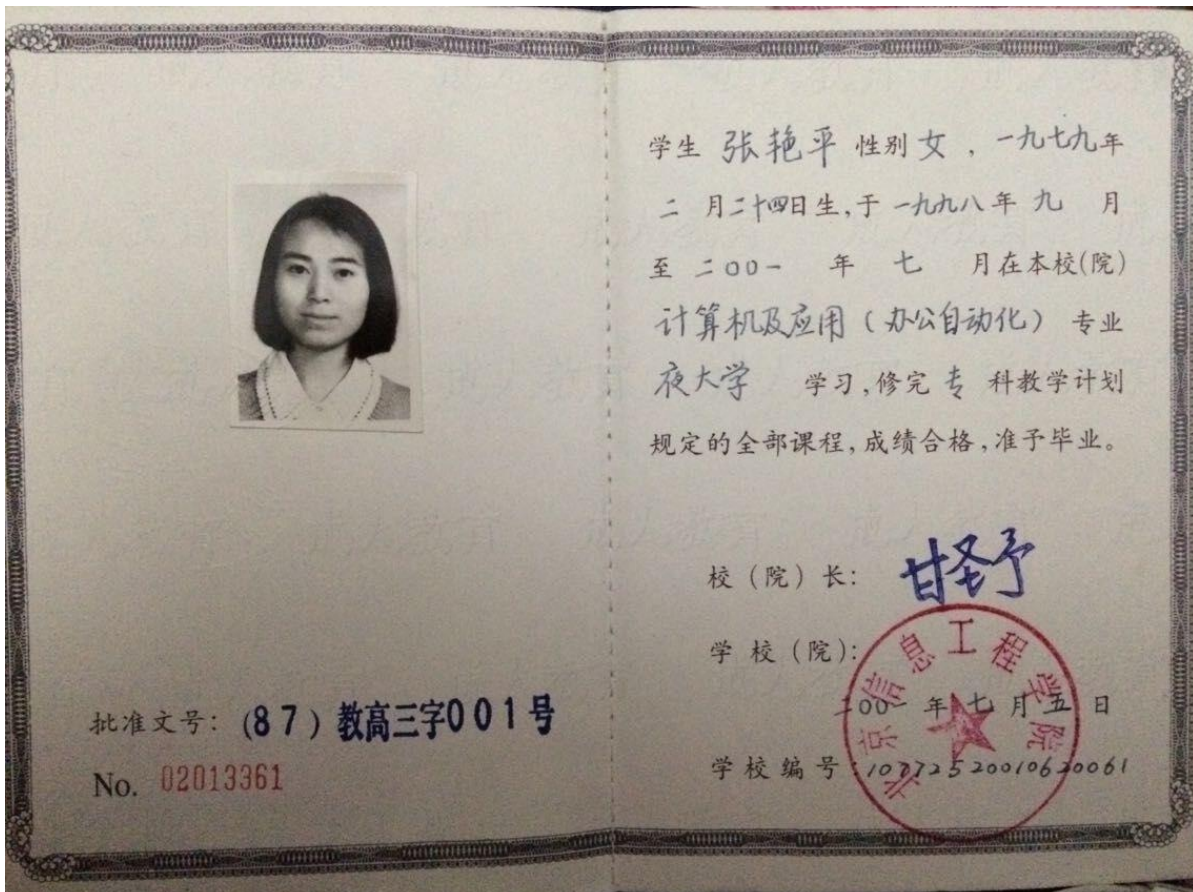 批准文号：(87) 教高三字001号
No. 02013361
学生 张艳平 性别 女 ，一九七九年
二 月二十四日生,于 一九九八年 九 月
至 二00一 年 七 月在本校(院)
计算机及应用（办公自动化）专业
夜大学 学习,修完 专 科教学计划
规定的全部课程,成绩合格,准予毕业。
校（院）长： 甘圣予
学 校（院）：
北京信息工程学院
二00一年七月五日
学校编号:10772520010620061